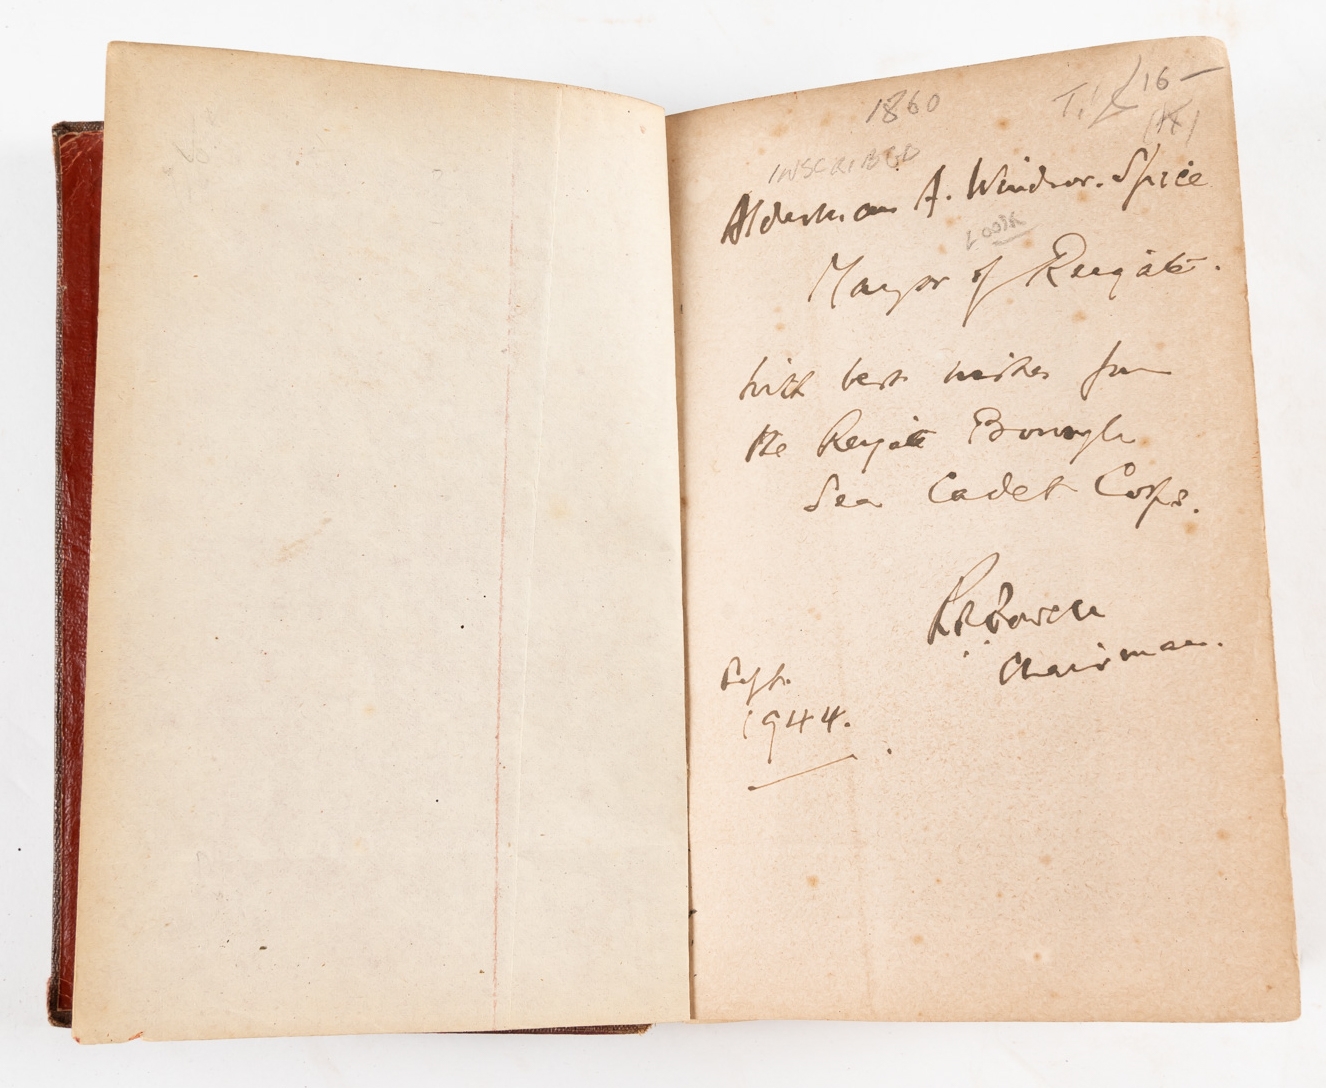 1860
T. £16-
INSCRIBED
Alderman A. Windsor-Spice
LOOK
Mayor of Reigate.
with best wishes from
the Reigate Borough
Sea Cadet Corps.
Chairman.
Sept.
1944.